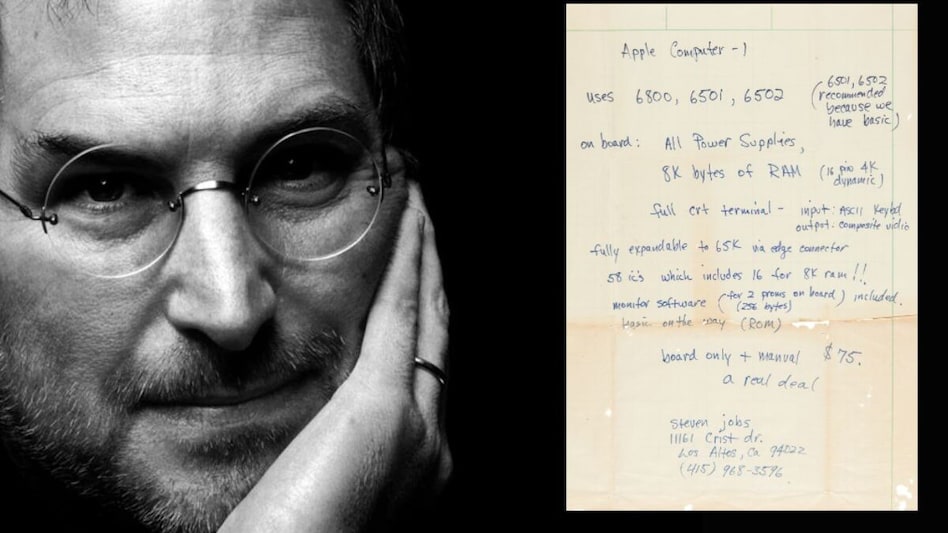 Apple Computer - 1
uses 6800, 6501, 6502 (6501, 6502
recommended
because we
have basic)
on board: All Power Supplies,
8K bytes of RAM (16 pin 4K
dynamic)
full crt terminal - input: ASCII Keybd
output: composite vidio
fully expandable to 65K via edge connector
58 ic's which includes 16 for 8K ram!!
monitor software (for 2 proms on board) included.
(256 bytes)
basic on the way (ROM)
board only + manual $75.
a real deal
steven jobs
11161 Crist dr.
Los Altos, Ca 94022
(415) 968-3596